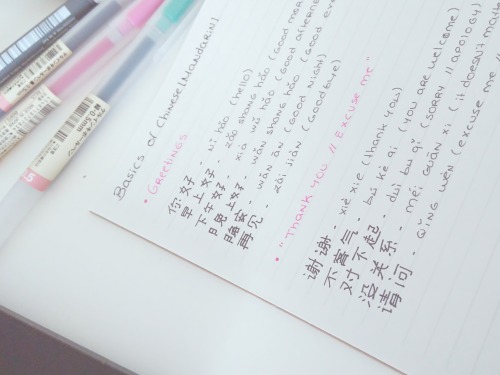 Basics of Chinese [Mandarin]
• GREETINGS
你好 - nǐ hǎo (hello)
早上好 - zǎo shang hǎo (Good mor
下午好 - xia wǔ hǎo (Good afterno
晚上好 - wǎn shang hǎo (Good eve
晚安 - wǎn ān (Good night)
再见 - zài jiàn (Goodbye)
• "Thank you // Excuse me"
谢谢 - xiè xie (thank you)
不客气 - bú kè qi (you are welcome)
对不起 - duì bu qǐ (sorry // apology)
没关系 - méi guān xi (it doesn't matte
请问 - qǐng wèn (excuse me //
0.5mm